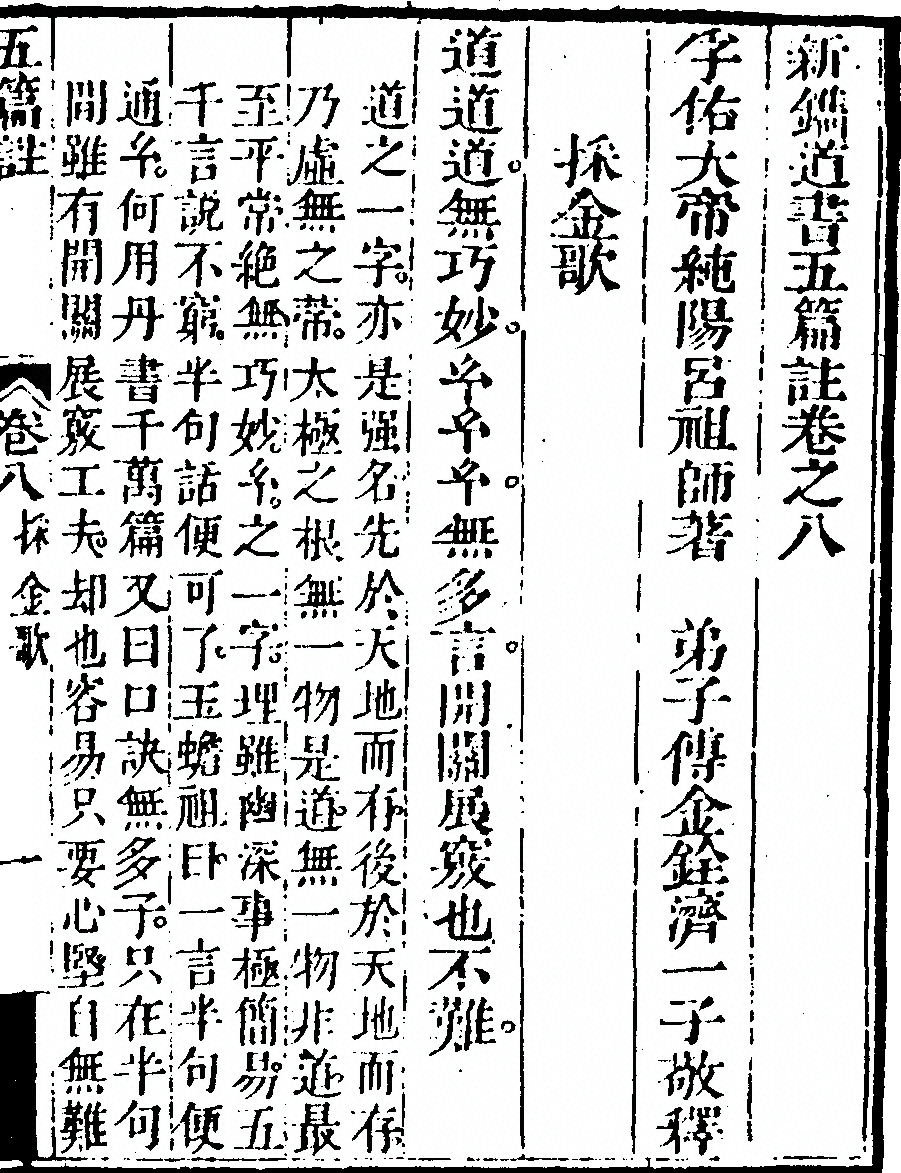 新鐫道書五篇註卷之八
孚佑大帝純陽呂祖師著 弟子傅金銓濟一子敬釋
採金歌
道道道。無巧妙。𠆤𠆤𠆤。無多言。開關展竅也不難。
道之一字。亦是强名先於天地而存後於天地而存
乃虛無之蒂。太極之根無一物是道。無一物非道。最
至平常絶無巧妙。𠆤。之一字。理雖幽深事極簡易。五
千言說不窮。半句話便可了。玉蟾祖曰。一言半句便
通𠆤。何用丹書千萬篇又曰口訣無多子。只在半句
間雖有開關展竅工夫。却也容易只要心堅自無難
五篇註 卷八 採金歌 一